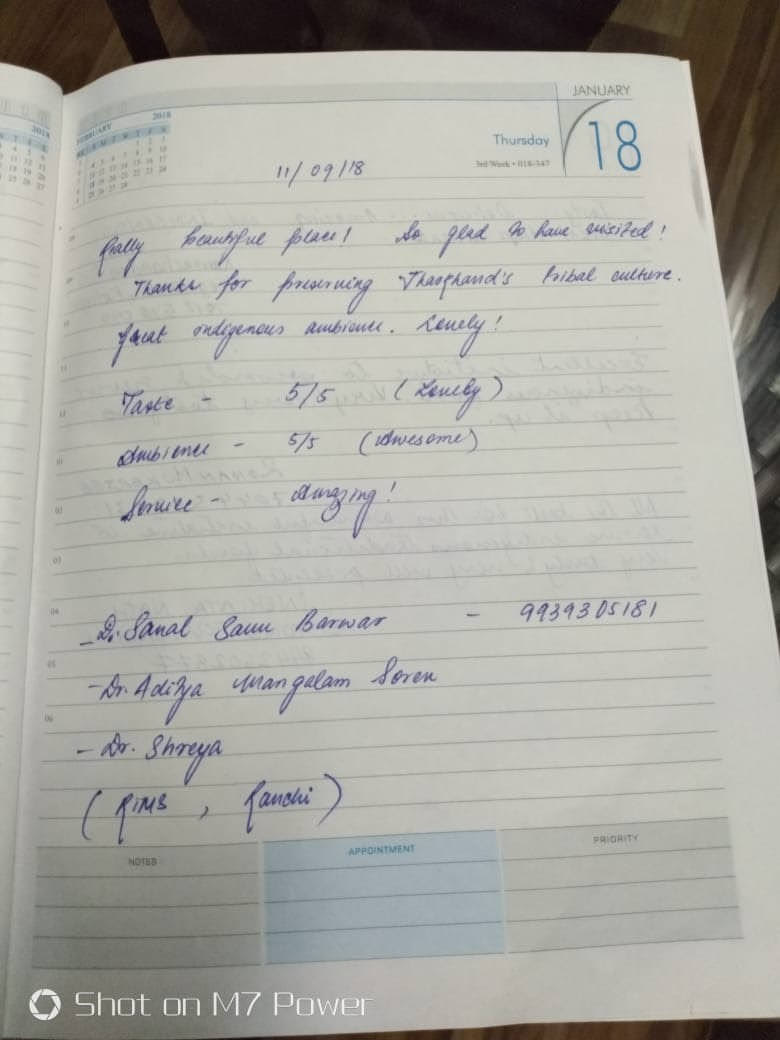 2018
FEBRUARY 2018
JANUARY
Thursday
18
3rd Week • 018-347
11/09/18
Really beautiful place! So glad to have visited!
Thanks for preserving Jharkhand's tribal culture.
Great indigenous ambience. Lovely!
Taste - 5/5 (Lovely)
Ambience - 5/5 (Awesome)
Service - Amazing!
- Dr. Sanal Sanu Barwar - 9939305181
- Dr. Aditya Mangalam Soren
- Dr. Shreya
(RIMS, Ranchi)
NOTES
APPOINTMENT
PRIORITY
Shot on M7 Power